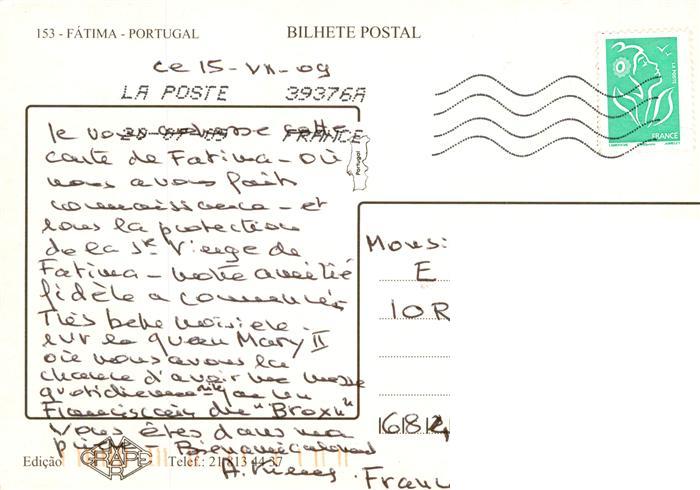 153 - FÁTIMA - PORTUGAL
BILHETE POSTAL
ce 15-VII-09
LA POSTE 39376A
FRANCE
LA POSTE
FRANCE
Portugal
Je vous adresse cette
carte de Fatima - où
nous avons fait
connaissance - et
sous la protection
de la Ste Vierge de
Fatima - notre amitié
fidèle a commencé
Très belle
sur le Queen Mary II
où nous avons la
chance d'avoir une messe
quotidienne par un
Franciscain du "Bronx"
Vous êtes dans ma
Bien amicalement
A.
Monsi
E
10 R
1682
France
Edição
GRAFIPE
Telef.: 21 813 44 37